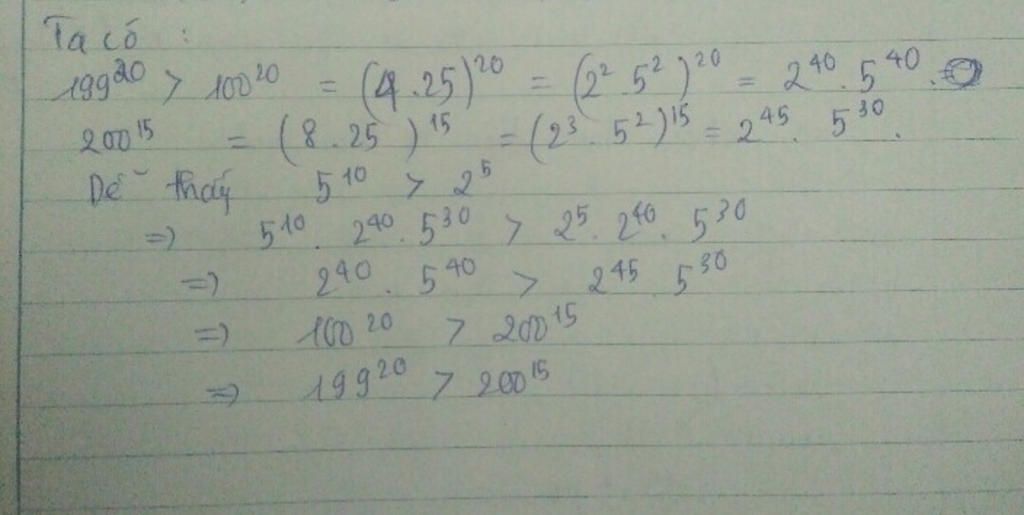 Ta có :
199²⁰ > 100²⁰ = (4.25)²⁰ = (2².5²)²⁰ = 2⁴⁰.5⁴⁰.
200¹⁵ = (8.25)¹⁵ = (2³.5²)¹⁵ = 2⁴⁵.5³⁰.
Dễ thấy 5¹⁰ > 2⁵
=> 5¹⁰.2⁴⁰.5³⁰ > 2⁵.2⁴⁰.5³⁰
=> 2⁴⁰.5⁴⁰ > 2⁴⁵ 5³⁰
=> 100²⁰ > 200¹⁵
=> 199²⁰ > 200¹⁵